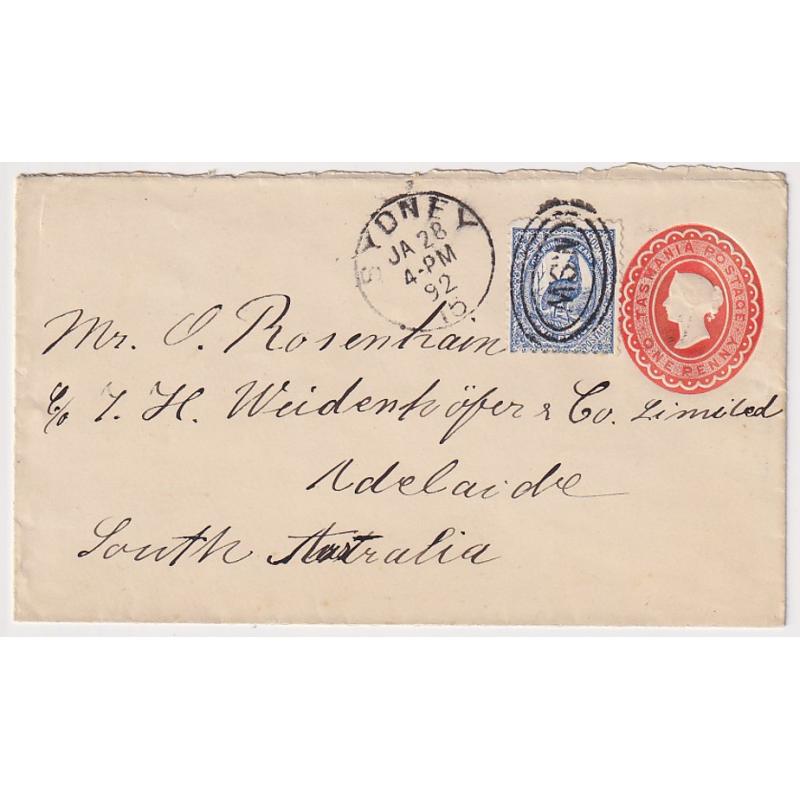 SYDNEY
JA 28
4-PM
92
15
NSW
POSTAGE
TASMANIA POSTAGE
ONE PENNY
Mr. O. Rosenhain
c/o T. H. Weidenhöfer & Co. Limited
Adelaide
South Australia